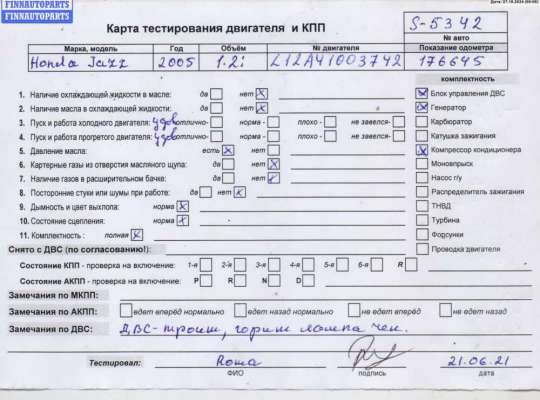 FINNAUTOPARTS
FINNAUTOPARTS
Карта тестирования двигателя и КПП
S-5342
№ авто
Марка, модель Год Объём № двигателя Показание одометра
Honda Jazz 2005 1.2i L12A41003742 176645
комплектность
1. Наличие охлаждающей жидкости в масле: да нет x
2. Наличие масла в охлаждающей жидкости: да нет x
3. Пуск и работа холодного двигателя: удов отлично- норма - плохо - не завелся-
4. Пуск и работа прогретого двигателя: удов отлично- норма - плохо - не завелся-
5. Давление масла: есть x нет
6. Картерные газы из отверстия масляного щупа: да нет x
7. Наличие газов в расширительном бачке: да нет x
8. Посторонние стуки или шумы при работе: да нет x
9. Дымность и цвет выхлопа: норма x
10. Состояние сцепления: норма x
11. Комплектность : полная x
x Блок управления ДВС
x Генератор
Карбюратор
Катушка зажигания
x Компрессор кондиционера
Моновпрыск
Насос г/у
Распределитель зажигания
ТНВД
Турбина
Форсунки
Проводка двигателя
Снято с ДВС (по согласованию!):
Состояние КПП - проверка на включение: 1-я 2-я 3-я 4-я 5-я 6-я Р R
Состояние АКПП - проверка на включение: P R N D
Замечания по МКПП:
Замечания по АКПП: едет вперёд нормально едет назад нормально не едет вперёд не едет назад
Замечания по ДВС: ДВС-троит, горит лампа чек.
Тестировал: Рома 21.06.21
ФИО подпись дата